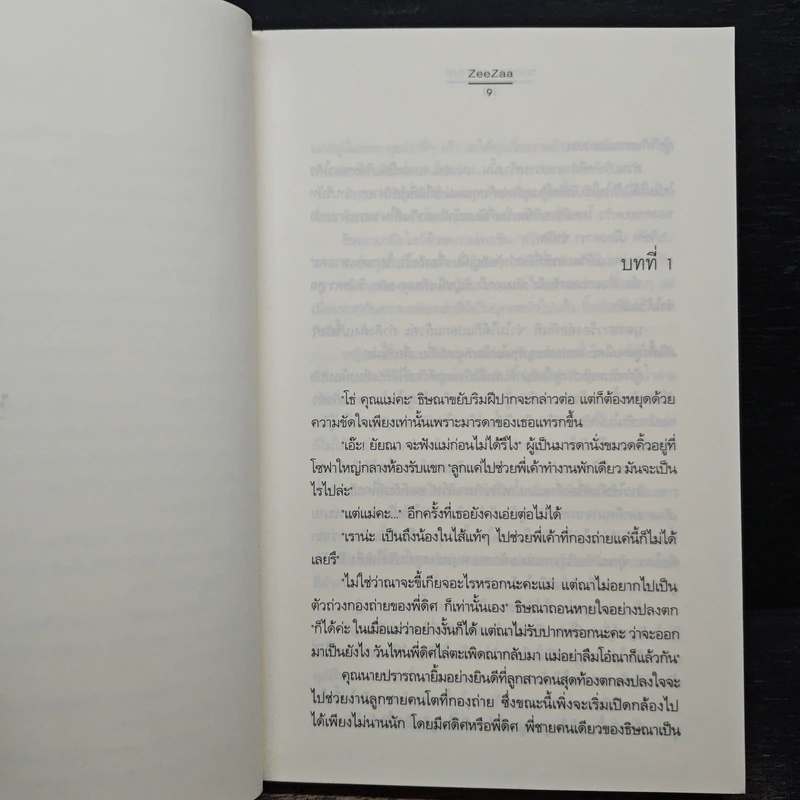 ZeeZaa
9
บทที่ 1
"โธ่ คุณแม่คะ" ธิษณาขยับริมฝีปากจะกล่าวต่อ แต่ก็ต้องหยุดด้วย
ความขัดใจเพียงเท่านั้นเพราะมารดาของเธอแทรกขึ้น
"เอ๊ะ! ยัยณา จะฟังแม่ก่อนไม่ได้รึไง" ผู้เป็นมารดานั่งขมวดคิ้วอยู่ที่
โซฟาใหญ่กลางห้องรับแขก "ลูกแค่ไปช่วยพี่เค้าทำงานพักเดียว มันจะเป็น
ไรไปล่ะ"
"แต่แม่คะ..." อีกครั้งที่เธอยังคงเอ่ยต่อไม่ได้
"เราน่ะ เป็นถึงน้องในไส้แท้ๆ ไปช่วยพี่เค้าที่กองถ่ายแค่นี้ก็ไม่ได้
เลยรึ"
"ไม่ใช่ว่าณาจะขี้เกียจอะไรหรอกนะคะแม่ แต่ณาไม่อยากไปเป็น
ตัวถ่วงกองถ่ายของพี่ดิศ ก็เท่านั้นเอง" ธิษณาถอนหายใจอย่างปลงตก
"ก็ได้ค่ะ ในเมื่อแม่ว่าอย่างงั้นก็ได้ แต่ณาไม่รับปากหรอกนะคะ ว่าจะออก
มาเป็นยังไง วันไหนพี่ดิศไล่ตะเพิดณากลับมา แม่อย่าลืมโอ๋ณาก็แล้วกัน"
คุณนายปรารถนายิ้มอย่างยินดีที่ลูกสาวคนสุดท้องตกลงปลงใจจะ
ไปช่วยงานลูกชายคนโตที่กองถ่าย ซึ่งขณะนี้เพิ่งจะเริ่มเปิดกล้องไป
ได้เพียงไม่นานนัก โดยมีศดิศหรือพี่ดิศ พี่ชายคนเดียวของธิษณาเป็น